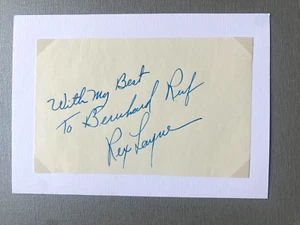 With My Best
To Bernhard Ruf
Rex Layne